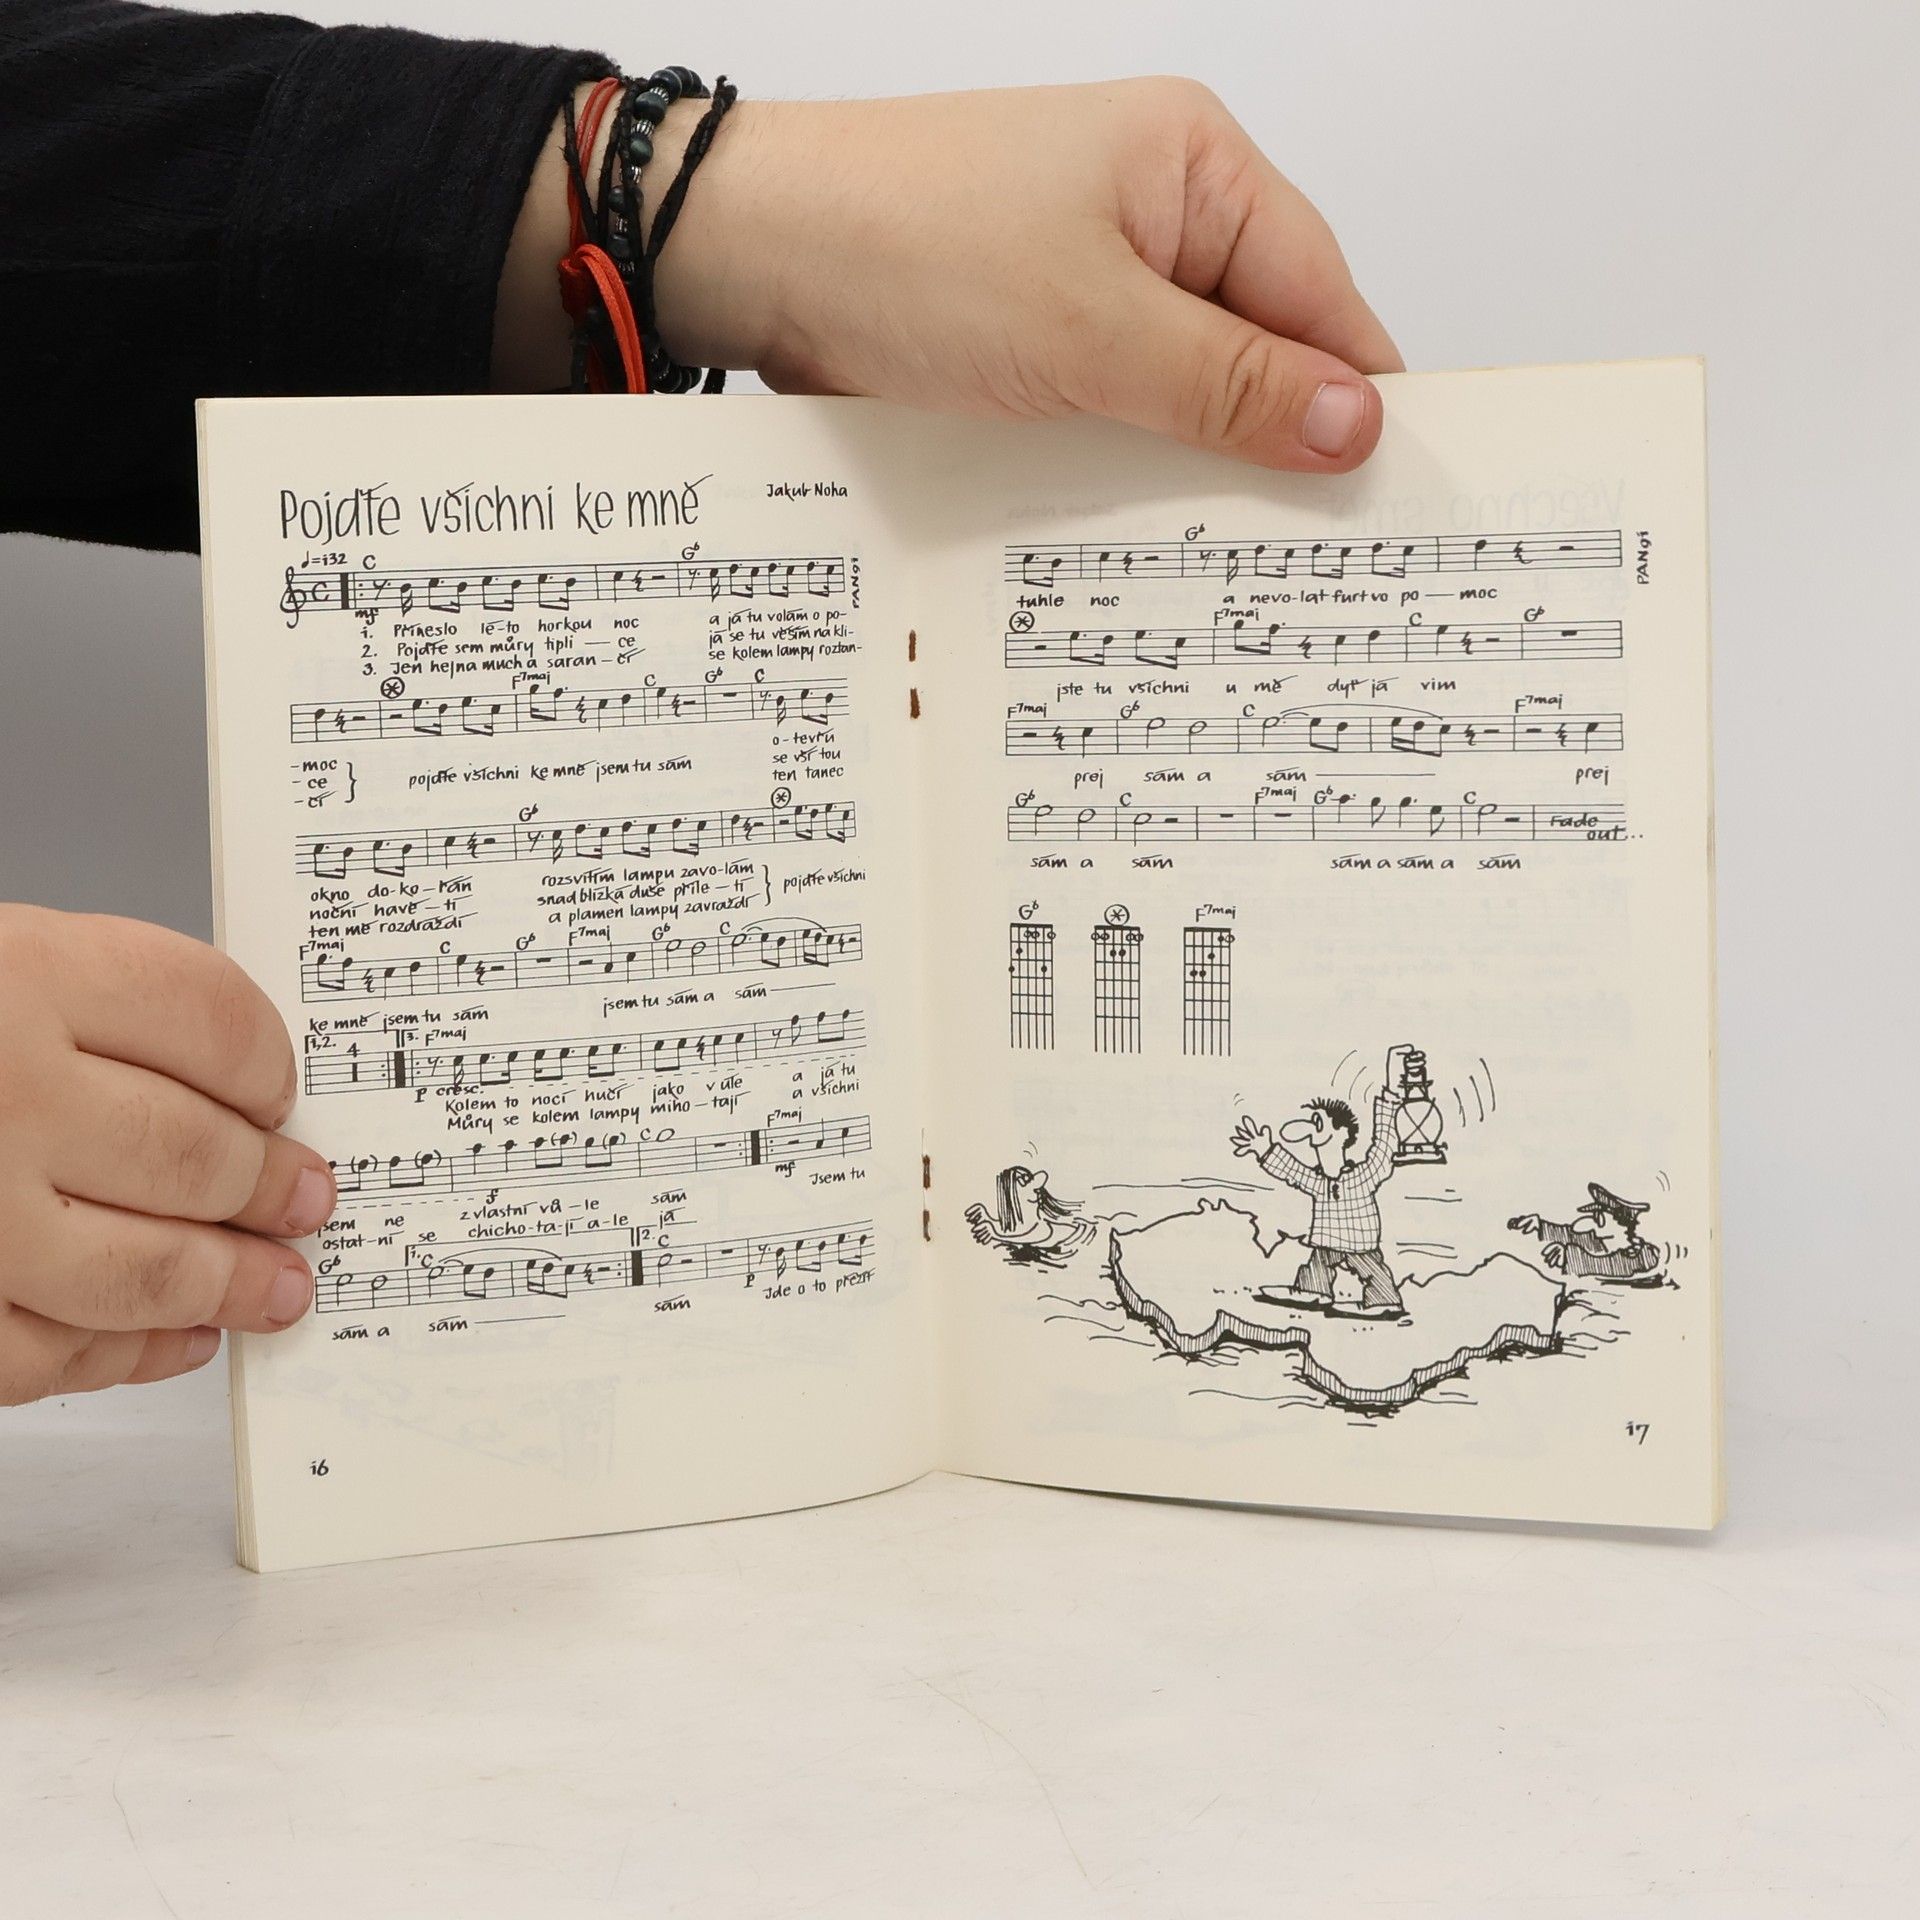 Pojďte všichni ke mně
Jakub Noha
♩=132 C G♭
mf PAN91
1. Přineslo lé-to horkou noc a já tu volám o po-
2. Pojďte sem můry tipli — ce já se tu věším na kli-
3. Jen hejna much a saran — čí se kolem lampy roztan-
F7maj C G♭ C
-moc o-tevřu
-ce } pojďte všichni ke mně jsem tu sám se vší tou
-čí ten tanec
G♭
okno do-ko-řán rozsvítím lampu zavo-lám
noční havě-tí snad blízká duše příle-tí } pojďte všichni
ten mě rozdráždí a plamen lampy zavraždí
F7maj C G♭ F7maj G♭ C
ke mně jsem tu sám jsem tu sám a sám
1,2. 4 3. F7maj
p cresc.
Kolem to nocí hučí jako v úle a já tu
Můry se kolem lampy miho-tají a všichni
C F7maj
f mf
jsem ne zvlastní vů-le sám Jsem tu
ostat-ní se chicho-ta-jí a-le já
G♭ 1. C 2. C
p
sám a sám sám Jde o to přežít
16
G♭
PAN91
tuhle noc a nevo-lat furt vo po — moc
F7maj C G♭
jste tu všichni u mě dyť já vim
F7maj G♭ C F7maj
prej sám a sám prej
G♭ C F7maj G♭ C
Fade out...
sám a sám sám a sám a sám
G♭ F7maj
17